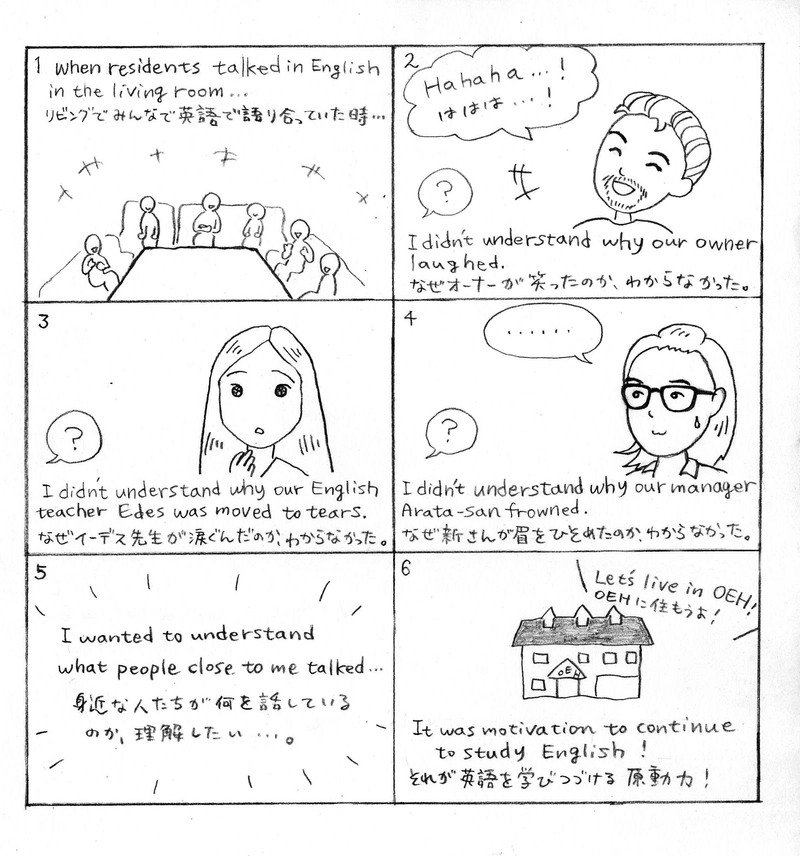 1 When residents talked in English
in the living room...
リビングでみんなで英語で語り合っていた時…
2
Hahaha...!
ははは…!
?
I didn't understand why our owner
laughed.
なぜオーナーが笑ったのか、わからなかった。
3
?
I didn't understand why our English
teacher Edes was moved to tears.
なぜイーデス先生が涙ぐんだのか、わからなかった。
4
......
?
I didn't understand why our manager
Arata-san frowned.
なぜ新さんが眉をひそめたのか、わからなかった。
5
I wanted to understand
what people close to me talked...
身近な人たちが何を話している
のか、理解したい…。
6
Let's live in OEH!
OEHに住もうよ!
OEH
It was motivation to continue
to study English!
それが英語を学びつづける原動力!